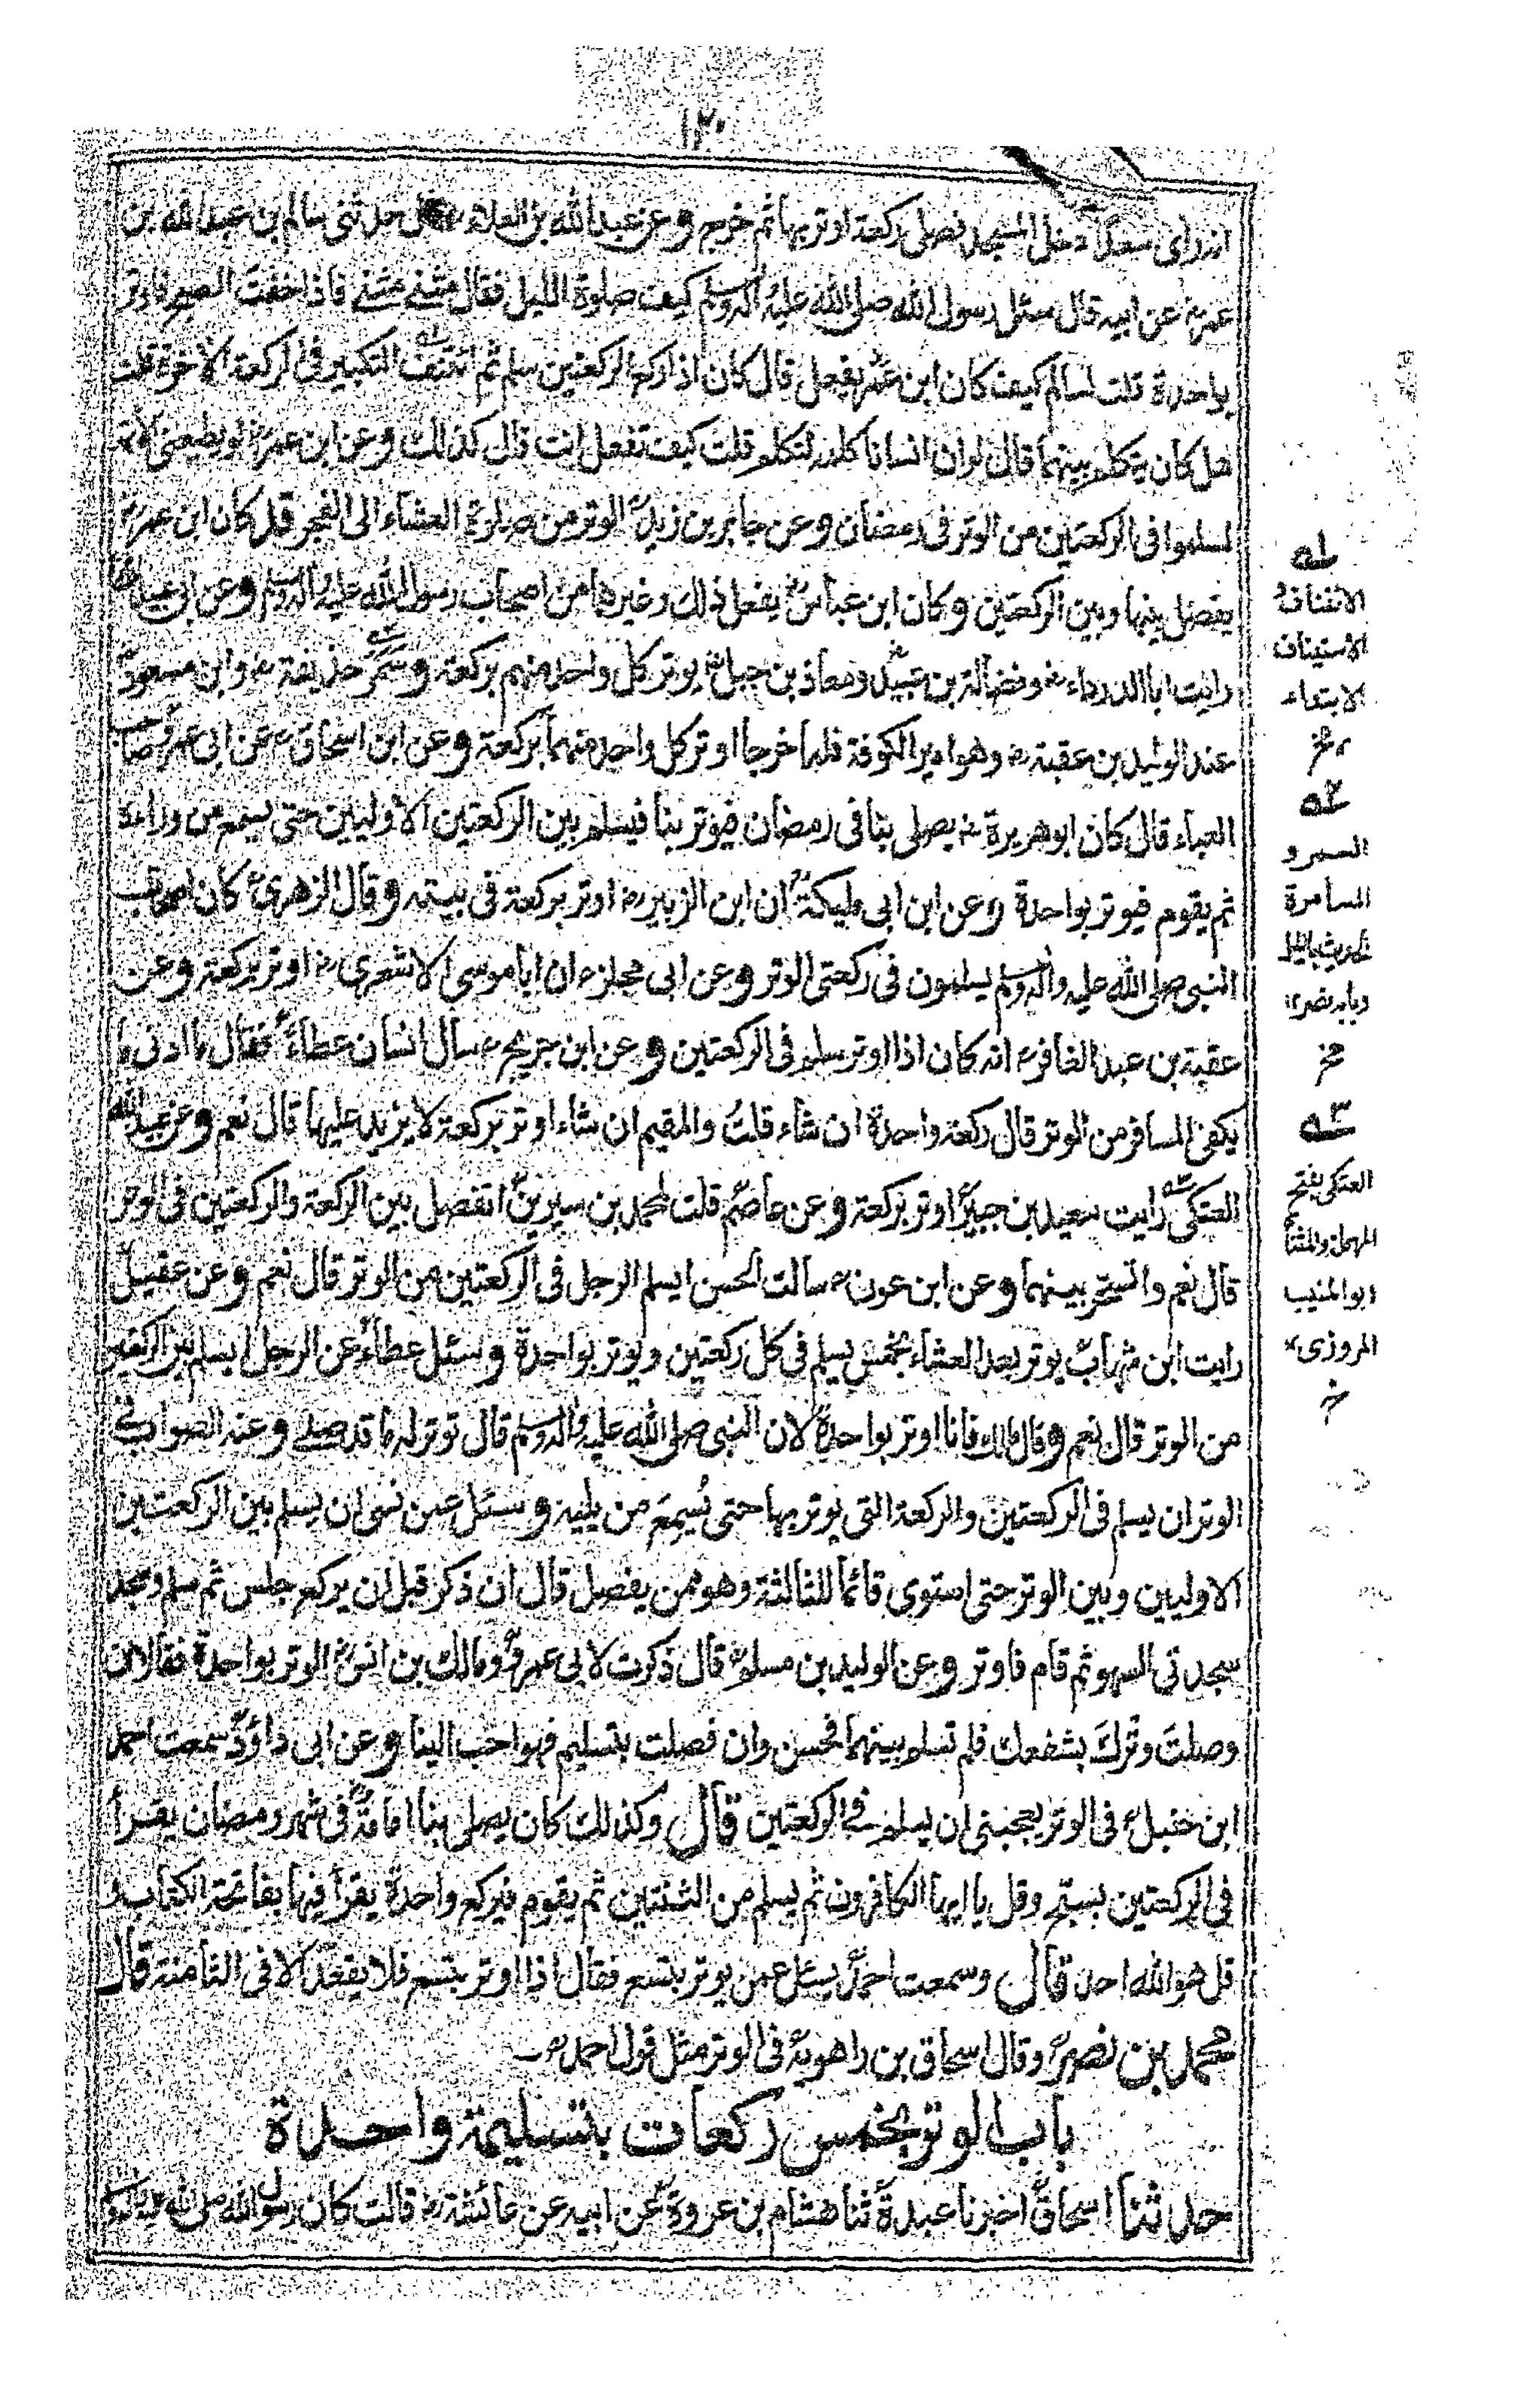 ۱۲۰
انه رأى سعدا دخل المسجد فصلى ركعة اوتر بها ثم خرج وعن عبد الله بن العلاء حدثنى سالم بن عبد الله بن
عمر عن ابيه قال سئل رسول الله صلى الله عليه وآله وسلم كيف صلوة الليل فقال مثنى مثنى فاذا خفت الصبح فاوتر
بواحدة قلت لسالم كيف كان ابن عمر يفعل قال كان اذا ركع الركعتين سلم ثم ائتنف التكبير فى الركعة الآخرة قلت
هل كان يتكلم بينهما قال لو ان انسانا كلمه لتكلم قلت كيف تفعل انت قال كذلك وعن ابن عمر لو يطيعنى
لسلموا فى الركعتين من الوتر فى رمضان وعن جابر بن زيد الوتر من صلوة العشاء الى الفجر قد كان ابن عمر
يفصل بينها وبين الركعتين وكان ابن عباس يفعل ذلك وغيرهما من اصحاب رسول الله صلى الله عليه وآله وسلم وعن ابى عبيد الله
رايت ابا الدرداء وفضالة بن عبيد ومعاذ بن جبل يوتر كل واحد منهم بركعة وسمر حذيفة وابن مسعود
عند الوليد بن عقبة وهو امير الكوفة فلما خرجا اوتر كل واحد منهما بركعة وعن ابن اسحاق عن ابى عمرو صاحب
العباء قال كان ابو هريرة يصلى بنا فى رمضان فيوتر بنا فيسلم بين الركعتين الاوليين حتى يسمع من وراءه
ثم يقوم فيوتر بواحدة وعن ابن ابى مليكة ان ابن الزبير اوتر بركعة فى بيته وقال الزهرى كان اصحاب
النبى صلى الله عليه وآله وسلم يسلمون فى ركعتى الوتر وعن ابى مجلز ان ابا موسى الاشعرى اوتر بركعة وعن
عقبة بن عبد الغافر انه كان اذا اوتر سلم فى الركعتين وعن ابن جريج سال انسان عطاء فقال ما ادنى ما
يكفى المسافر من الوتر قال ركعة واحدة ان شاء قلت والمقيم ان شاء اوتر بركعة لا يزيد عليها قال نعم وعن عبيد الله
العتكى رايت سعيد بن جبير اوتر بركعة وعن عاصم قلت لمحمد بن سيرين اتفصل بين الركعة والركعتين فى الوتر
قال نعم وانتحر بينهما وعن ابن عون سالت الحسن ايسلم الرجل فى الركعتين من الوتر قال نعم وعن عقيل
رايت ابن شهاب يوتر بعد العشاء بخمس يسلم فى كل ركعتين ويوتر بواحدة وسئل عطاء عن الرجل ايسلم بين الركعتين
من الوتر قال نعم وقال مالك فانا اوتر بواحدة لان النبى صلى الله عليه وآله وسلم قال توتر له ما قد صلى وعنه الصواب فى
الوتر ان يسلم فى الركعتين والركعة التى يوتر بها حتى يُسمِعَ من يليه وسئل عمن نسى ان يسلم بين الركعتين
الاوليين وبين الوتر حتى استوى قائما للثالثة وهو ممن يفصل قال ان ذكر قبل ان يركع جلس ثم سلم وسجد
سجدتى السهو ثم قام فاوتر وعن الوليد بن مسلم قال ذكرت لابى عمرو ومالك بن انس الوتر بواحدة فقالا ان
وصلتَ وترَكَ بشفعك فلم تسلم بينهما فحسن وان فصلت بتسليم فهو احب الينا وعن ابى داؤد سمعت احمد
ابن حنبل فى الوتر يعجبنى ان يسلم فى الركعتين قال وكذلك كان يصلى بنا امامه فى شهر رمضان يقرأ
فى الركعتين بسبح وقل يا ايها الكافرون ثم يسلم من الثنتين ثم يقوم فيركع واحدة يقرأ فيها بفاتحة الكتاب و
قل هو الله احد قال وسمعت احمد يسئل عمن يوتر بتسع فقال اذا اوتر بتسع فلا يقعد الا فى الثامنة قال
محمد بن نصر وقال اسحاق بن راهويه فى الوتر مثل قول احمد
باب الوتر بخمس ركعات بتسليمة واحدة
حدثنا اسحاق اخبرنا عبدة ثنا هشام بن عروة عن ابيه عن عائشة قالت كان رسول الله صلى الله عليه وآله وسلم
له
الائتناف
الاستيناف
الابتداء
۲ه
السمر و
المسامرة
وبابه نصر
۳ه
العتكى بفتح
المهملة والمثناة
ابو المنيب
المروزى